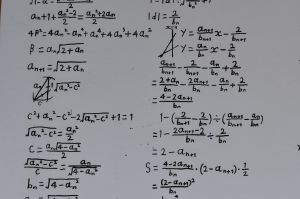 a_n+1+\frac{a_n^2-2}{2}=\frac{a_n^2+2a_n}{2}
β=a_n\sqrt{2+a_n}
a_{n+1}=\sqrt{2+a_n}
C
\sqrt{a_n^2-c^2}
c^2+a_n^2-c^2-2\sqrt{a_n^2-c^2}+1=1
\sqrt{a_n^2-c^2}=\frac{a_n^2}{2}
c=\frac{a_n\sqrt{4-a_n^2}}{2}
\frac{\sqrt{a_n^2-c^2}}{c}=\frac{a_n}{\sqrt{4-a_n^2}}
b_n=\sqrt{4-a_n^2}
|d|=\frac{2}{b_n}
y=\frac{a_{n+1}}{b_{n+1}}x-\frac{2}{b_{n+1}}
y=\frac{a_n}{b_n}x-\frac{2}{b_n}
\frac{a_{n+1}}{b_{n+1}}-\frac{2}{b_{n+1}}-\frac{a_n}{b_n}+\frac{2}{b_n}
=\frac{2+a_n}{b_n}-\frac{2a_{n+1}}{b_n}-\frac{a_n}{b_n}+\frac{2}{b_n}
=\frac{4-2a_{n+1}}{b_n}
1-(\frac{2}{b_{n+1}}-\frac{2}{b_n})÷(\frac{a_{n+1}}{b_{n+1}}-\frac{a_n}{b_n})
=1-\frac{2a_{n+1}-2}{b_n}÷\frac{2}{b_n}
=2-a_{n+1}
S=\frac{4-2a_{n+1}}{b_n}·(2-a_{n+1})·\frac{1}{2}
=\frac{(2-a_{n+1})^2}{b_n}